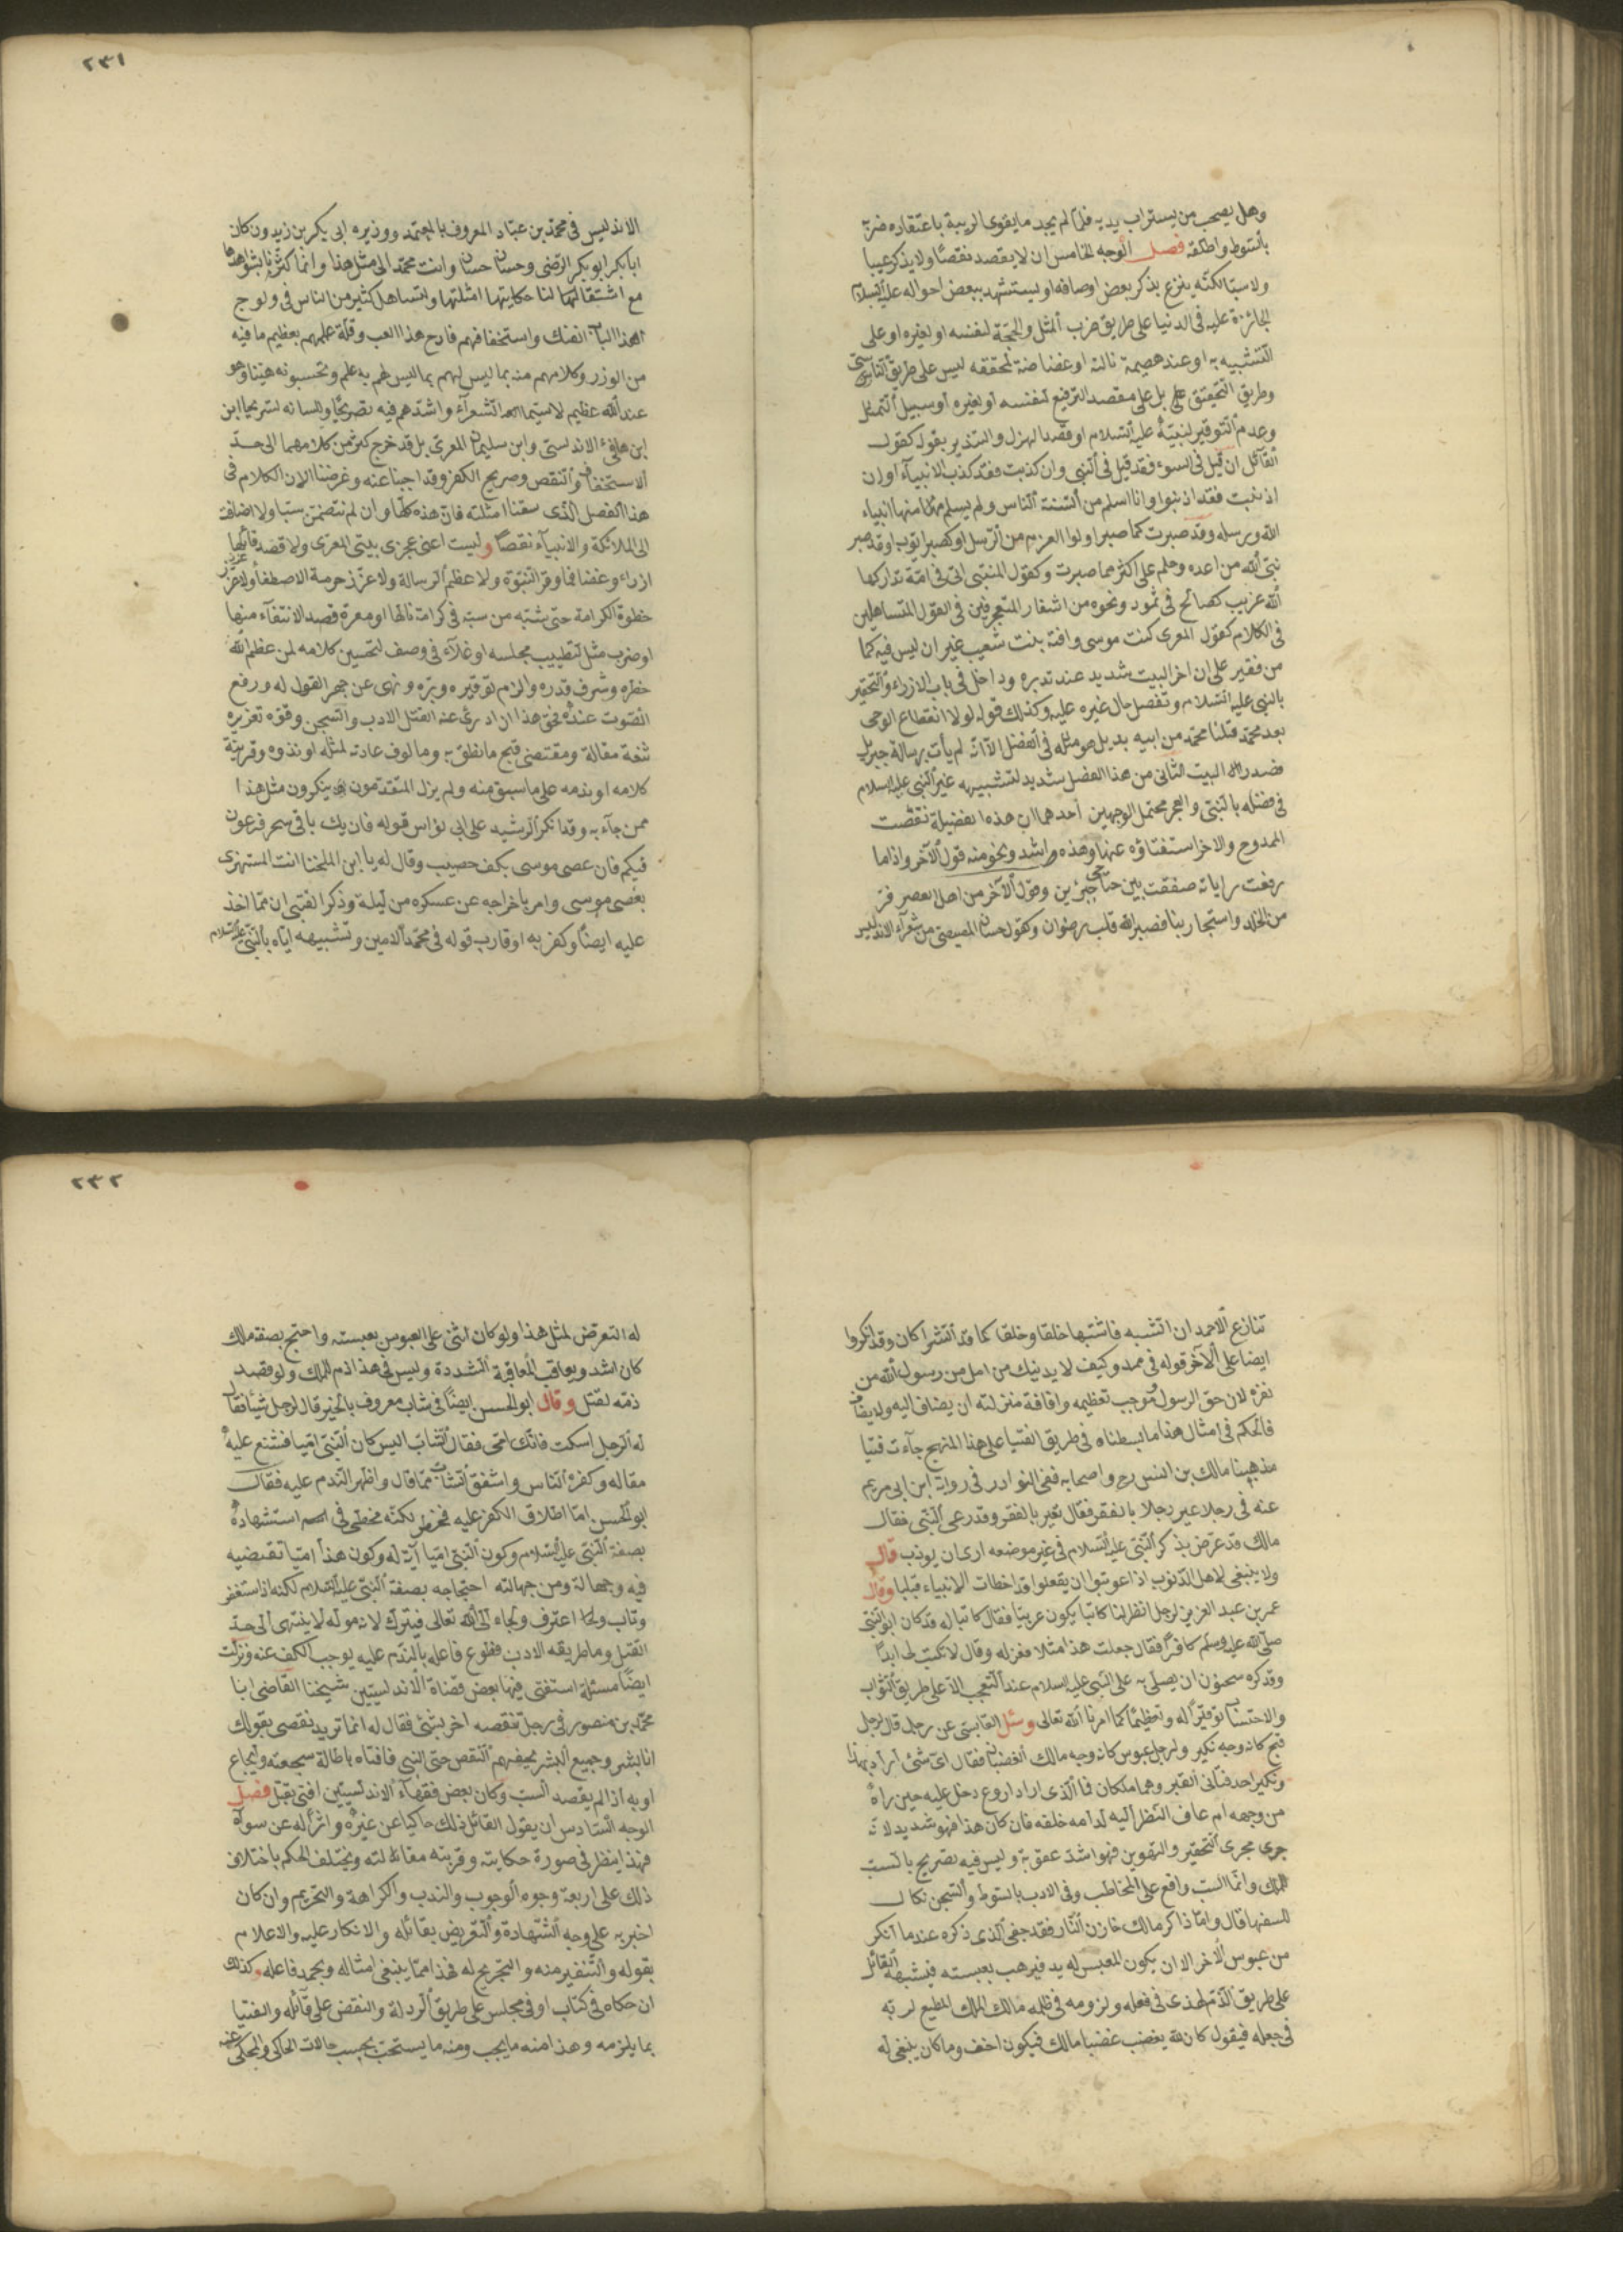 وهل يصحب من يستراب يديه فلما لم يجد ما يقوى الريبة باعتقاده ضربه
بالسوط واطلقه فصل الوجه الخامس ان لا يقصد نقصا ولا يذكر عيبا
ولا سبا لكنه ينزع بذكر بعض اوصافه او يستشهد ببعض احواله عليه السلام
الجائزة عليه فى الدنيا على طريق ضرب المثل والحجة لنفسه او لغيره او على
التشبيه به او عند هضيمة نالته او غضاضة لحقته ليس على طريق التاسى
وطريق التحقيق بل على مقصد الترفيع لنفسه او لغيره او سبيل التمثيل
وعدم التوقير لنبيه عليه السلام او قصد الهزل والتذير بقوله كقول
القائل ان قيل فى السوء فقد قيل فى النبى وان كذبت فقد كذب الانبياء او ان
اذنبت فقد اذنبوا وانا اسلم من السنة الناس ولم يسلم منها انبياء
الله ورسله وقد صبرت كما صبر اولوا العزم من الرسل او كصبر ايوب او قد صبر
نبى الله من اعده وحلم على اكثر مما صبرت وكقول المتنبى انى فى امة تداركها
الله غريب كصالح فى ثمود ونحوه من اشعار المتعجرفين فى القول المتساهلين
فى الكلام كقول المعرى كنت موسى وافته بنت شعيب غير ان ليس فيكما
من فقير على ان اخر البيت شديد عند تدبره وداخل فى باب الازراء والتحقير
بالنبى عليه السلام وتفضيل حال غيره عليه وكذلك قوله لولا انقطاع الوحى
بعد محمد قلنا محمد من ابيه بديل هو مثله فى الفضل الا انه لم يأت برسالة جبريل
فصدر البيت الثانى من هذا الفصل شديد لتشبيهه غير النبى عليه السلام
فى فضله بالنبى والعجز محتمل لوجهين احدهما ان هذه الفضيلة نقصت
الممدوح والاخر استغناؤه عنها وهذه اشد ونحو منه قول الآخر واذا ما
رفعت راياته صفقت بين جناحى جبرين وقول الآخر من اهل العصر فر
من الخلد واستجار بنا فصبر الله قلب رضوان وكقول حسان المصيصى من شعراء الاندلس
٢٣١
الاندليس فى محمد بن عباد المعروف بالمعتمد ووزيره ابى بكر بن زيدون كان
ابا بكر ابو بكر الرضى وحسان حسان وانت محمد الى مثل هذا وانما كثرنا بشواهدها
مع اشتقالنا لها حكايتها امثلتها ولتساهل كثير من الناس فى ولوج
هذا الباب الضنك واستخفافهم فادح هذا العب وقلة علمهم بعظيم ما فيه
من الوزر وكلامهم منه بما ليس لهم به علم وتحسبونه هينا وهو
عند الله عظيم لا سيما الشعراء واشدهم فيه تصريحا ولسانه تسريحا ابن
ابن هانئ الاندلسى وابن سليمان المعرى بل قد خرج كثير من كلامهما الى حد
الاستخفاف والنقص وصريح الكفر وقد اجبنا عنه وغرضنا الان الكلام فى
هذا الفصل الذى سقنا امثلته فان هذه كلها وان لم تتضمن سبا ولا اضافت
الى الملائكة والانبياء نقصا وليست اعنى عجزى بيتى المعرى ولا قصد قائلها
ازراء وغضا فما وقر النبوة ولا عظم الرسالة ولا عزر حرمة الاصطفا ولا عزز
خطوة الكرامة حتى شبه من شبه فى كرامة نالها او معرة قصد الانتفاء منها
او ضرب مثل لتطييب مجلسه او غلآء فى وصف لتحسين كلامه لمن عظم الله
خطره وشرف قدره والزم توقيره وبره ونهى عن جهر القول له ورفع
الصوت عنده فحق هذا ان ادرئ عنه القتل الادب والسجن وقوة تعزيره
شنعة مقالة ومقتضى قبح ما نطق به ومالوف عادته لمثله او نذوه وقرينة
كلامه او ندمه على ما سبق منه ولم يزل المتقدمون ينكرون مثل هذا
ممن جآء به وقد انكر الرشيد على ابى نواس قوله فان يك باقى سحر فرعون
فيكم فان عصى موسى بكف خصيب وقال له يا ابن اللخنا انت المستهزى
بعصى موسى وامر باخراجه عن عسكره من ليلة وذكر القتبى ان مما اخذ
عليه ايضا وكفر به او قارب قوله فى محمد الامين وتشبيهه اياه بالنبى عليه السلام
تنازع الاحمدان الشبه فاشتبها خلقا وخلقا كما قد الشراكان وقد انكروا
ايضا على الآخر قوله فى ممد وكيف لا يدنيك من امل من رسول الله من
نفره لان حق الرسول وموجب تعظيمه وانافة منزلته ان يضاف اليه ولا يضاف
فالحكم فى امثال هذا ما بسطناه فى طريق الفتيا على هذا المنهج جآءت فتيا
مذهبنا مالك بن انس رح واصحابه ففى النوادر فى رواية ابن ابى مريم
عنه فى رجل عير رجلا بالفقر فقال تعير بالفقر وقد رعى النبى فقال
مالك قد عرض بذكر النبى عليه السلام فى غير موضعه ارى ان يودب قال
ولا ينبغى لاهل الذنوب اذا عوتبوا ان يقعلوا قد اخطات الانبياء قبلبا وقال
عمر بن عبد العزيز لرجل انظر لنا كاتبا يكون عربيا فقال كاتبا له قد كان ابو النبى
صلى الله عليه وسلم كافرا فقال جعلت هذا مثلا فعزله وقال لا تكتب لى ابدا
وقد كره سحنون ان يصلى به على النبى عليه السلام عند التعجب الا على طريق الثواب
والاحتساب توقيرا له وتعظيما كما امرنا الله تعالى وسئل القابسى عن رجل قال لرجل
قبح كانه وجه نكير ولرجل عبوس كانه وجه مالك الغضبان فقال اى شئ اراد بهذا
ونكير احد فتانى القبر وهما ملكان فما الذى اراد اروع دخل عليه حين رآه
من وجهه ام عاف النظر اليه لدامه خلقه فان كان هذا فهو شديد لانه
جرى مجرى التحقير والتهوين فهو اشد عقوبة وليس فيه تصريح بالسب
للملك وانما السب واقع على المخاطب وفى الادب بالسوط والسجن نكال
للسفها قال واما ذاكر مالك خازن النار فقد جفى الذى ذكره عندما انكر
من عبوس الاخر الا ان يكون المعبس له يد فيرهب بعبسته فيشبهه القائل
على طريق الذم لهذى فى فعله ولزومه فى ظلمه مالك الملك المطيع لربه
فى جعله فيقول كان لله يغضب غضبا مالك فيكون اخف وما كان ينبغى له
٢٣٢
له التعرض لمثل هذا ولو كان اثنى على العبوس بعبسته واحتج بصفة ملك
كان اشد ويعاقب المعاقبة الشددة وليس فى هذا ذم للملك ولو قصد
ذمه لقتل وقال ابو الحسن ايضا فى شاب معروف بالخير قال لرجل شيأ فقال
له الرجل اسكت فانك امى فقال الشاب اليس كان النبى اميا فشنع عليه
مقاله وكفره الناس واشفق الشاب مما قال واظهر الندم عليه فقال
ابو الحسن اما اطلاق الكفر عليه فخطر لكنه مخطئ فى استشهاده
بصفة النبى عليه السلام وكون النبى اميا آية له وكون هذا اميا نقيضيه
فيه وجهالة ومن جهالته احتجاجه بصفة النبى عليه السلام لكنه اذا استغفر
وتاب واعترف ولجاء الى الله تعالى فيترك لان قوله لا ينتهى الى حد
القتل وما طريقه الادب فطوع فاعله بالندم عليه يوجب الكف عنه ونزلت
ايضا مسئلة استفتى فيها بعض قضاة الاندلسيين شيخنا القاضى ابا
محمد بن منصور فى رجل تنقصه اخر بشئ فقال له انما تريد نقصى بقولك
انا بشر وجميع البشر يحيقهم النقص حتى النبى فافتاه باطالة سجعنه وايجاع
اوبه اذا لم يقصد السب وكان بعض فقهاء الاندلسيين افتى بقتل فصل
الوجه السادس ان يقول القائل ذلك حاكيا عن غيره واثرا له عن سواه
فهذا ينظر فى صورة حكايته وقرينه مقالته ويختلف الحكم باختلاف
ذلك على اربعة وجوه الوجوب والندب والكراهة والتحريم وان كان
اخبر به على وجه الشهادة والتعريض بقائله والانكار عليه والاعلام
بقوله والتنفير منه والتجريح له فهذا مما ينبغى امثاله ويحمد فاعله وكذلك
ان حكاه فى كتاب او فى مجلس على طريق الرد له والنقض على قائله والفتيا
بما يلزمه وهذا منه ما يجب ومنه ما يستحب بحسب حالات الحاكى والمحكى عنه